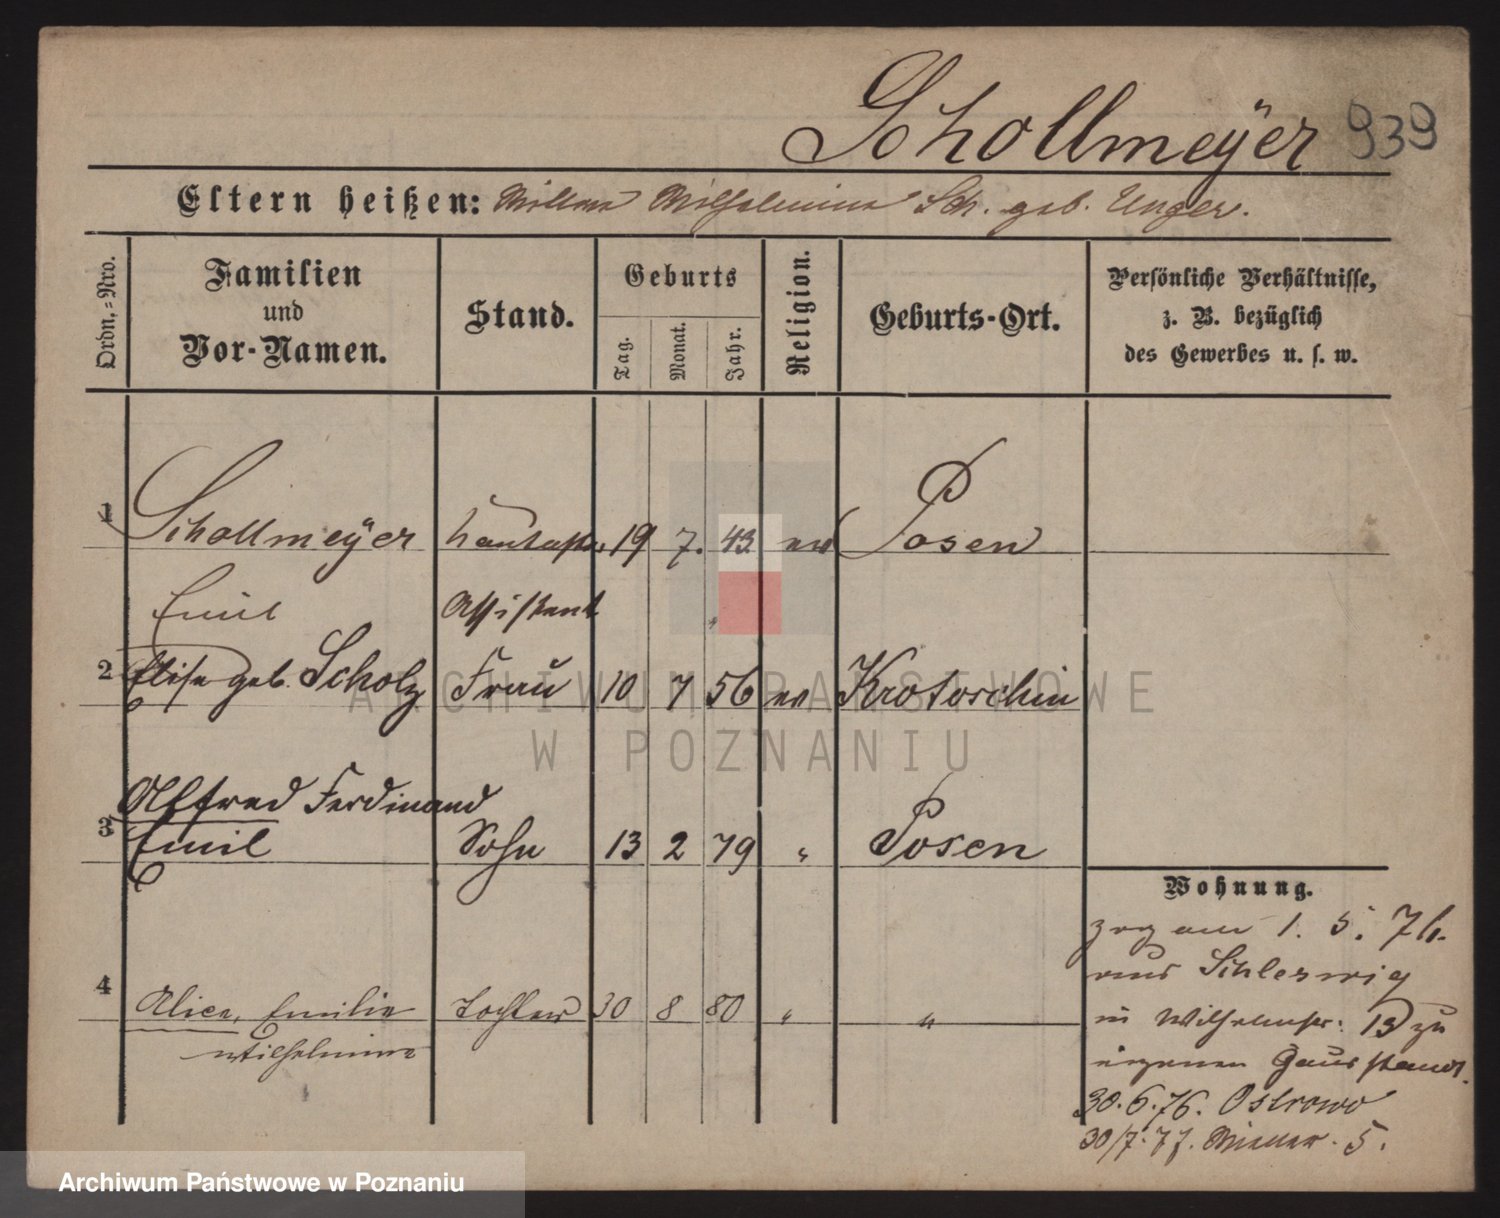 Schollmeÿer 939
Eltern heißen: Wilhelmine Sch. geb. Unger.
Ordn.-Nro.
Familien
und
Vor-Namen.
Stand.
Geburts
Tag.
Monat.
Jahr.
Religion.
Geburts-Ort.
Persönliche Verhältnisse,
z. B. bezüglich
des Gewerbes u. s. w.
1 Schollmeÿer 19 7. 43 ev Posen
Emil Assistent
2 Elise geb. Scholz Frau 10 7 56 ev Krotoschin
Alfred Ferdinand
3 Emil Sohn 13 2 79 " Posen
4 Alice, Emilie Tochter 30 8 80 " "
Wilhelmine
Wohnung.
zog am 1. 5. 76.
aus Schleswig
in Wilhelmstr: 13 zu
eigenen Hausstand.
30.6.76. Ostrowo
30/7.77. 5.
ARCHIWUM PAŃSTWOWE
W POZNANIU
Archiwum Państwowe w Poznaniu